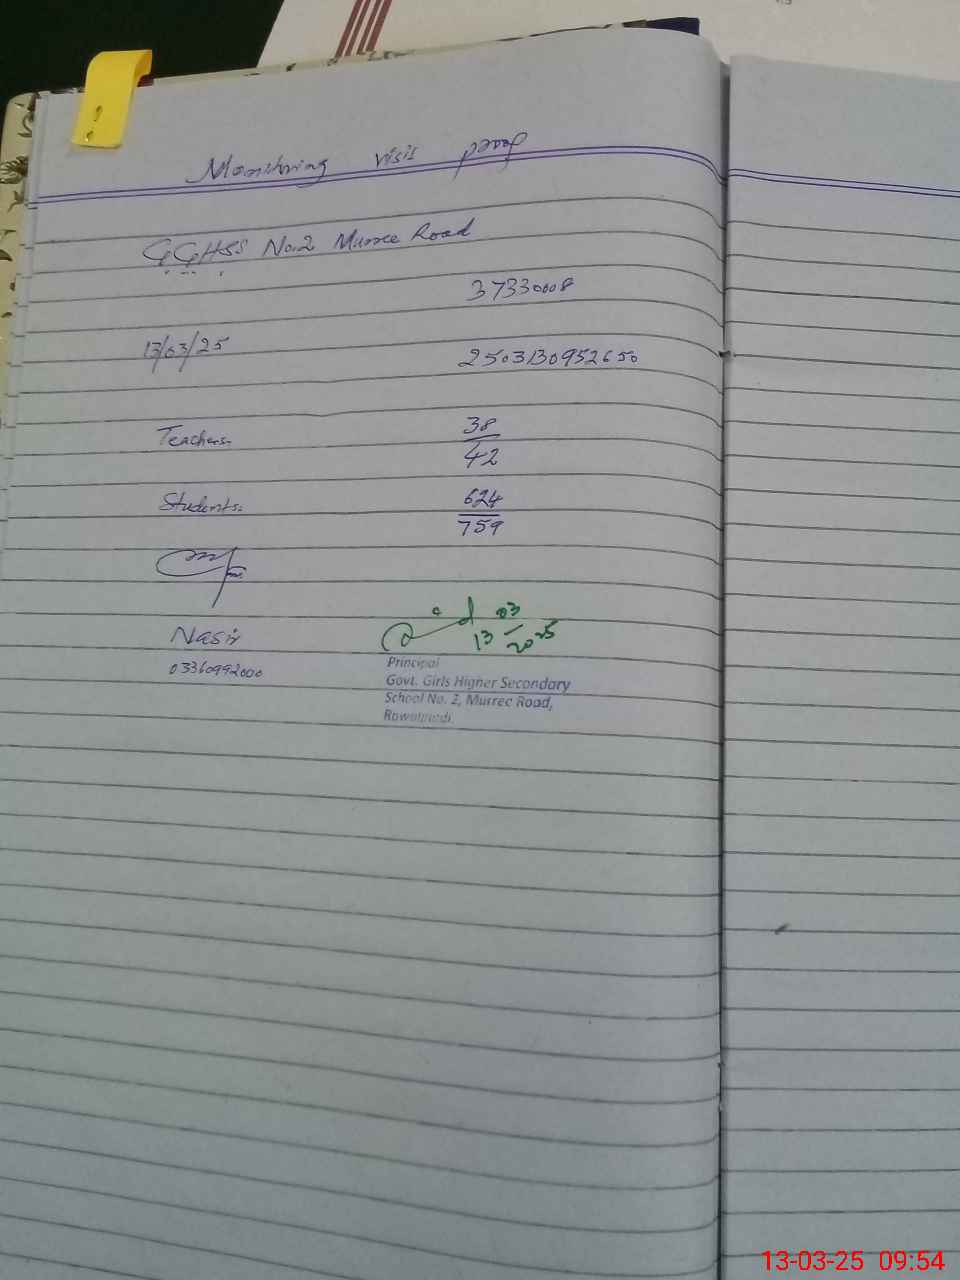 Monitoring visit proof
GGHSS No.2 Murree Road
37330008
13/03/25
2503130952650
Teachers.
38
42
Students.
624
759
13 03
2025
Nasir
03360992000
Principal
Govt. Girls Higher Secondary
School No. 2, Murree Road,
Rawalpindi.
13-03-25 09:54